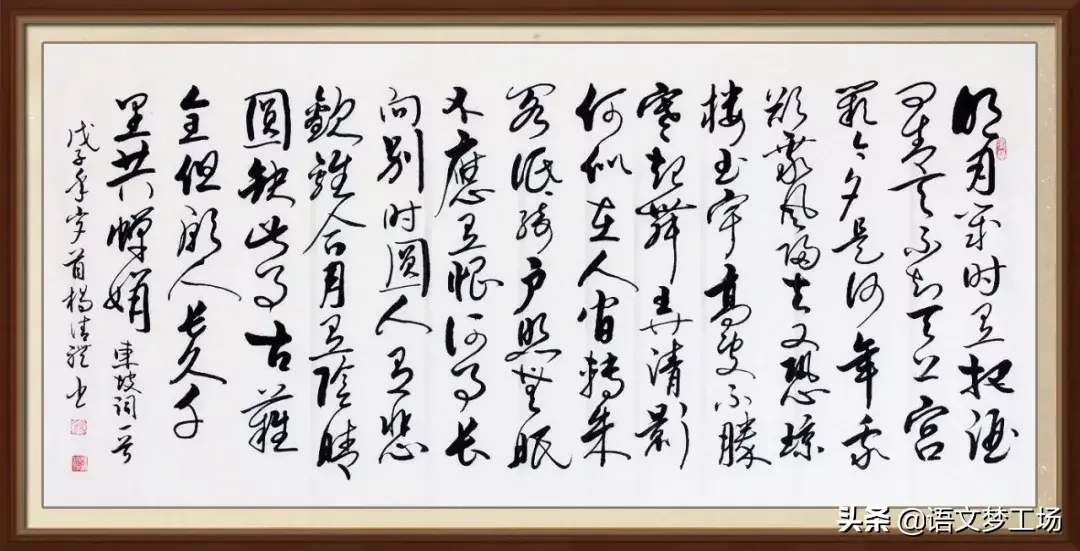 明月几时有把酒
问青天不知天上宫
阙今夕是何年我
欲乘风归去又恐琼
楼玉宇高处不勝
寒起舞弄清影
何似在人间轉朱
阁低绮户照无眠
不應有恨何事长
向别时圓人有悲
歡離合月有陰晴
圓缺此事古難
全但愿人长久千
里共嬋娟
東坡词一首
戊子年岁首杨清礼书
头条 @语文梦工场